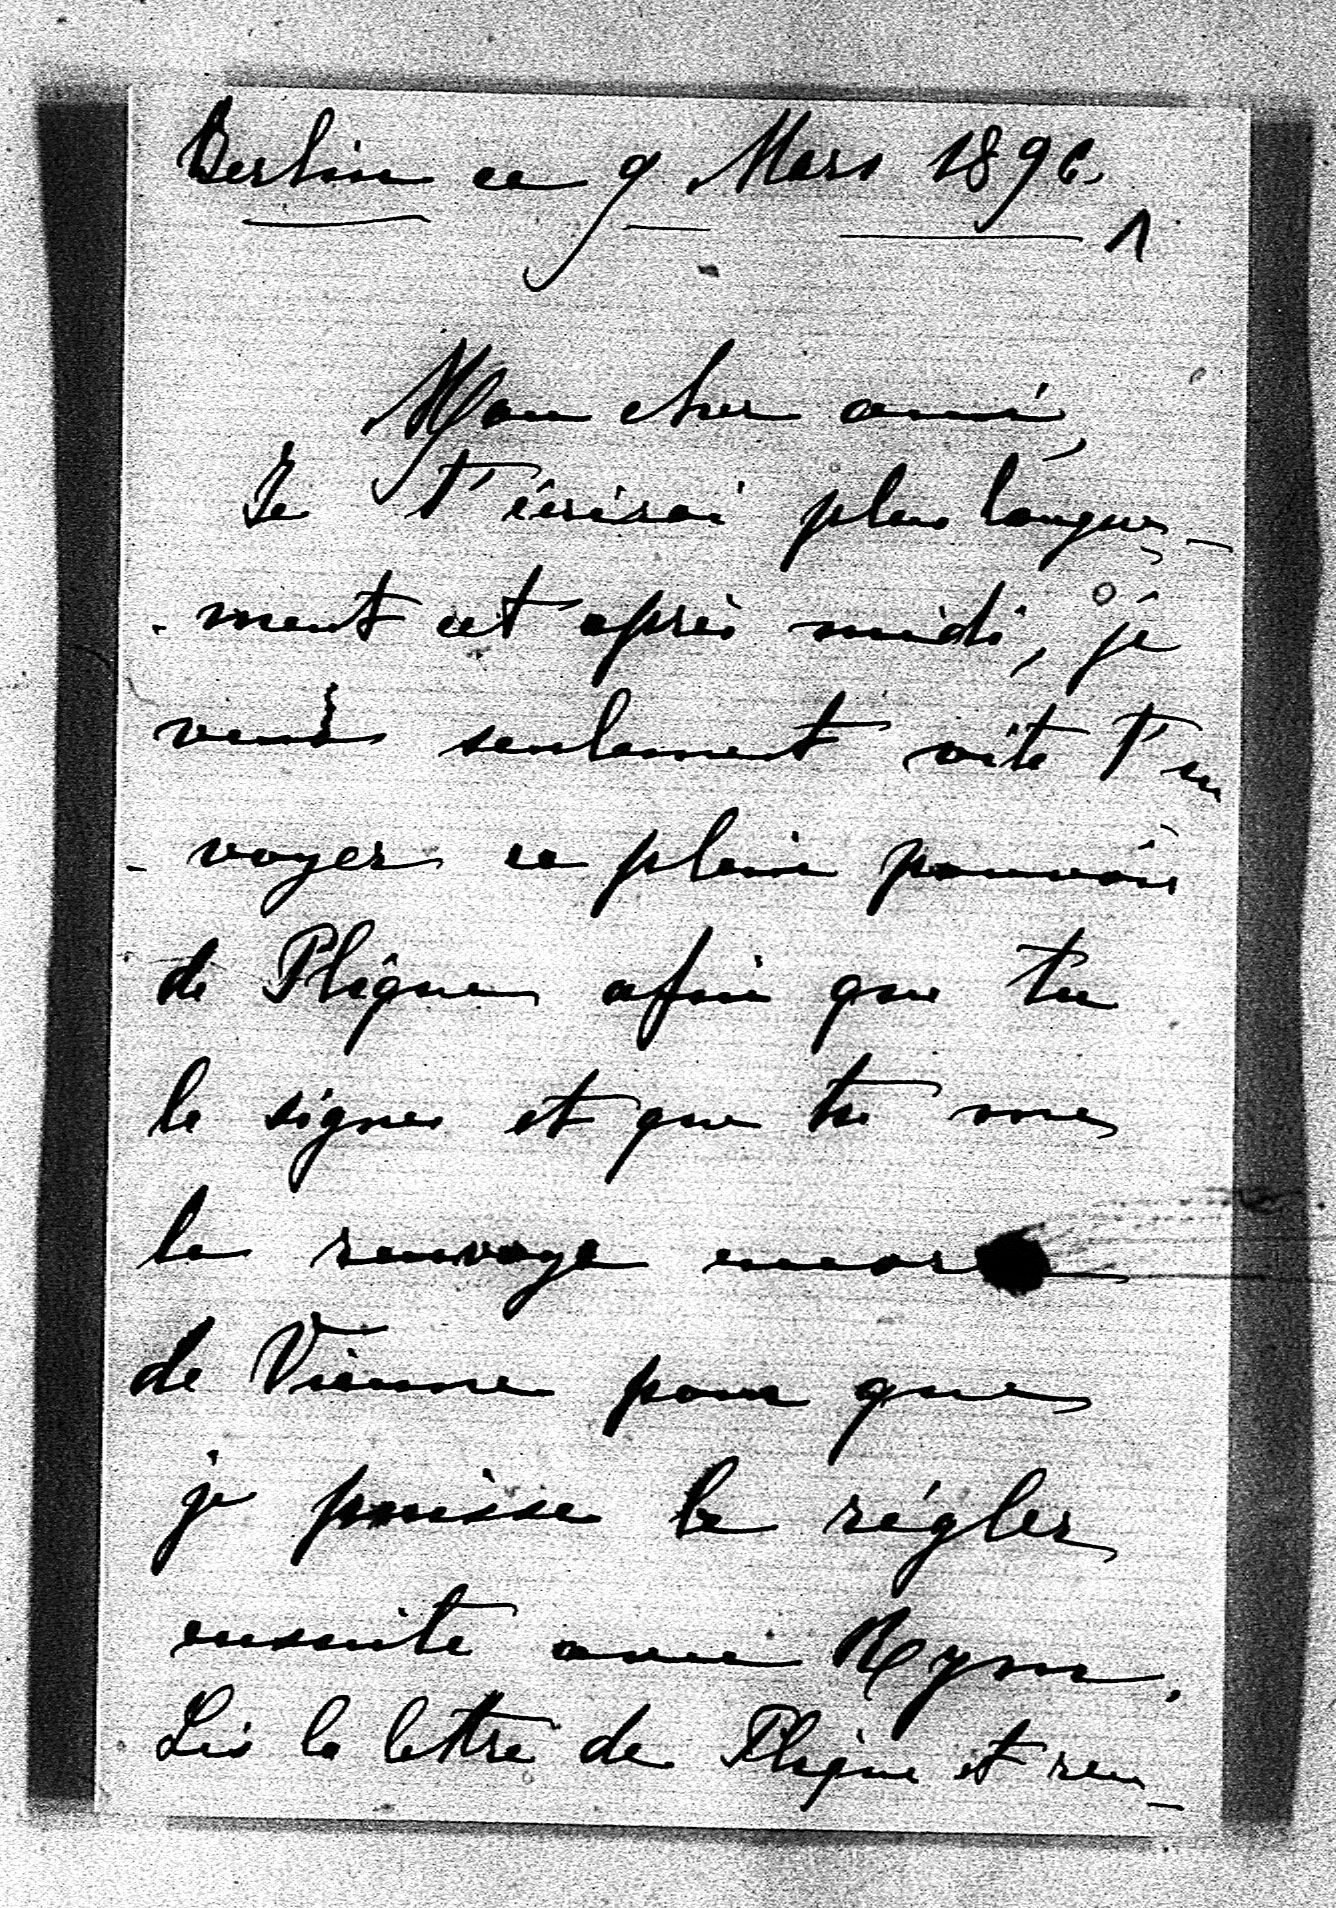 Berlin ce 9 Mars 1896.
1
Mon cher ami,
Je t'écrirai plus longue-
-ment cet après midi, je
veux seulement vite t'en
-voyer ce plein pouvoir
de Plique afin que tu
le signes et que tu me
le renvoye encore
de Vienne pour que
je puisse le régler
ensuite avec
Lis la lettre de Plique et ren-